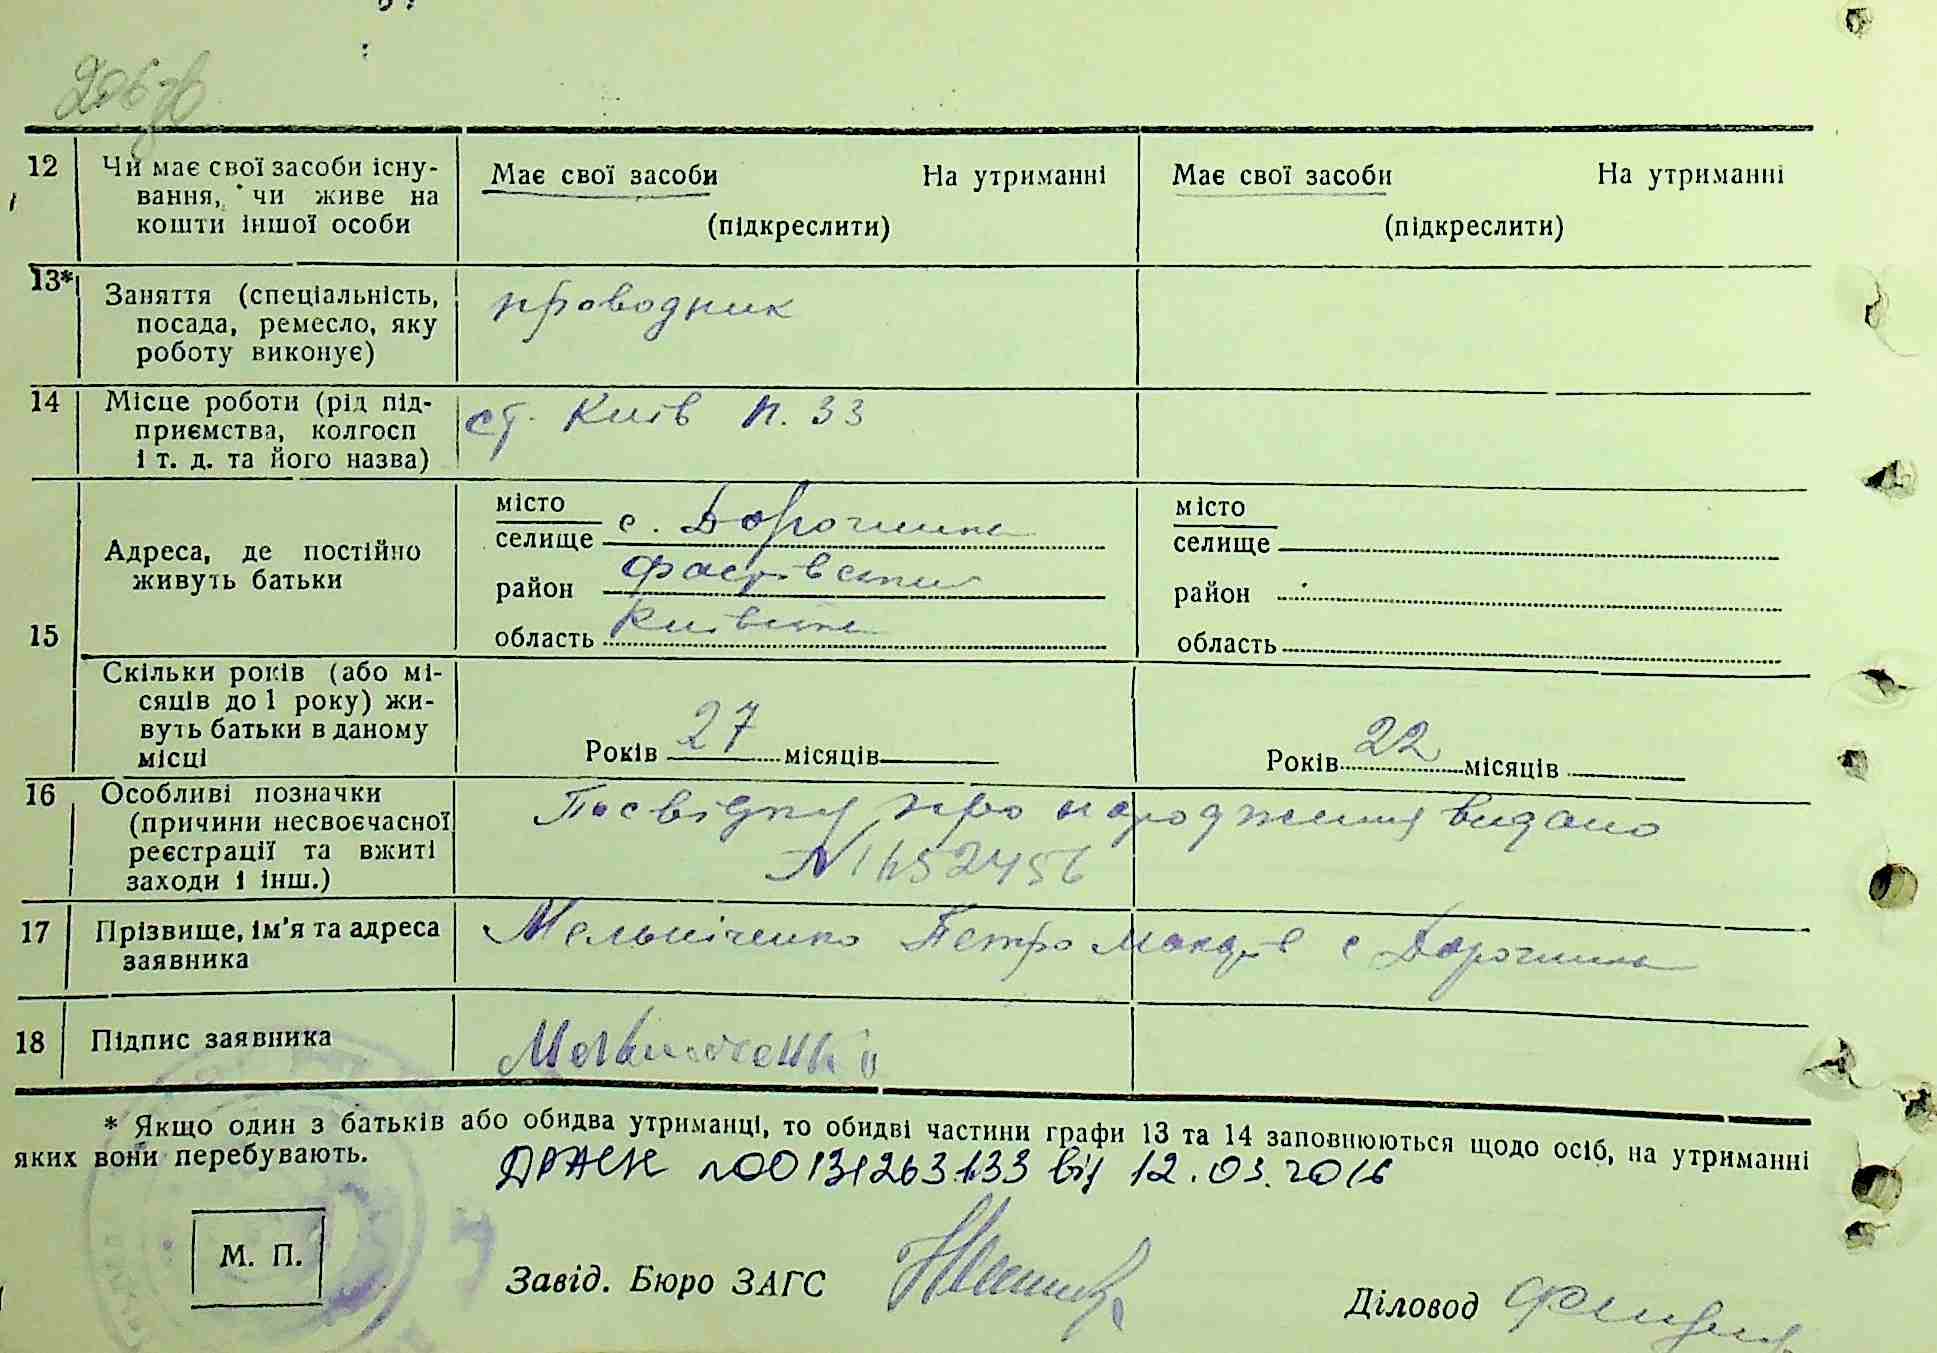 12
Чи має свої засоби існу-
вання, чи живе на
кошти іншої особи
Має свої засоби На утриманні
(підкреслити)
Має свої засоби На утриманні
(підкреслити)
13*
Заняття (спеціальність,
посада, ремесло, яку
роботу виконує)
проводник
14
Місце роботи (рід під-
приємства, колгосп
і т. д. та його назва)
ст. Київ п. 33
15
Адреса, де постійно
живуть батьки
місто
селище с. Дорогинка
район Фастівський
область Київська
місто
селище
район
область
Скільки років (або мі-
сяців до 1 року) жи-
вуть батьки в даному
місці
Років 27 місяців
Років 22 місяців
16
Особливі позначки
(причини несвоєчасної
реєстрації та вжиті
заходи і інш.)
Посвідку про народження видано
N
17
Прізвище, ім'я та адреса
заявника
Мельніченко Петро с Дорогинка
18
Підпис заявника
* Якщо один з батьків або обидва утриманці, то обидві частини графи 13 та 14 заповнюються щодо осіб, на утриманні
яких вони перебувають.
від 12.03.2016
М. П.
Завід. Бюро ЗАГС
Діловод